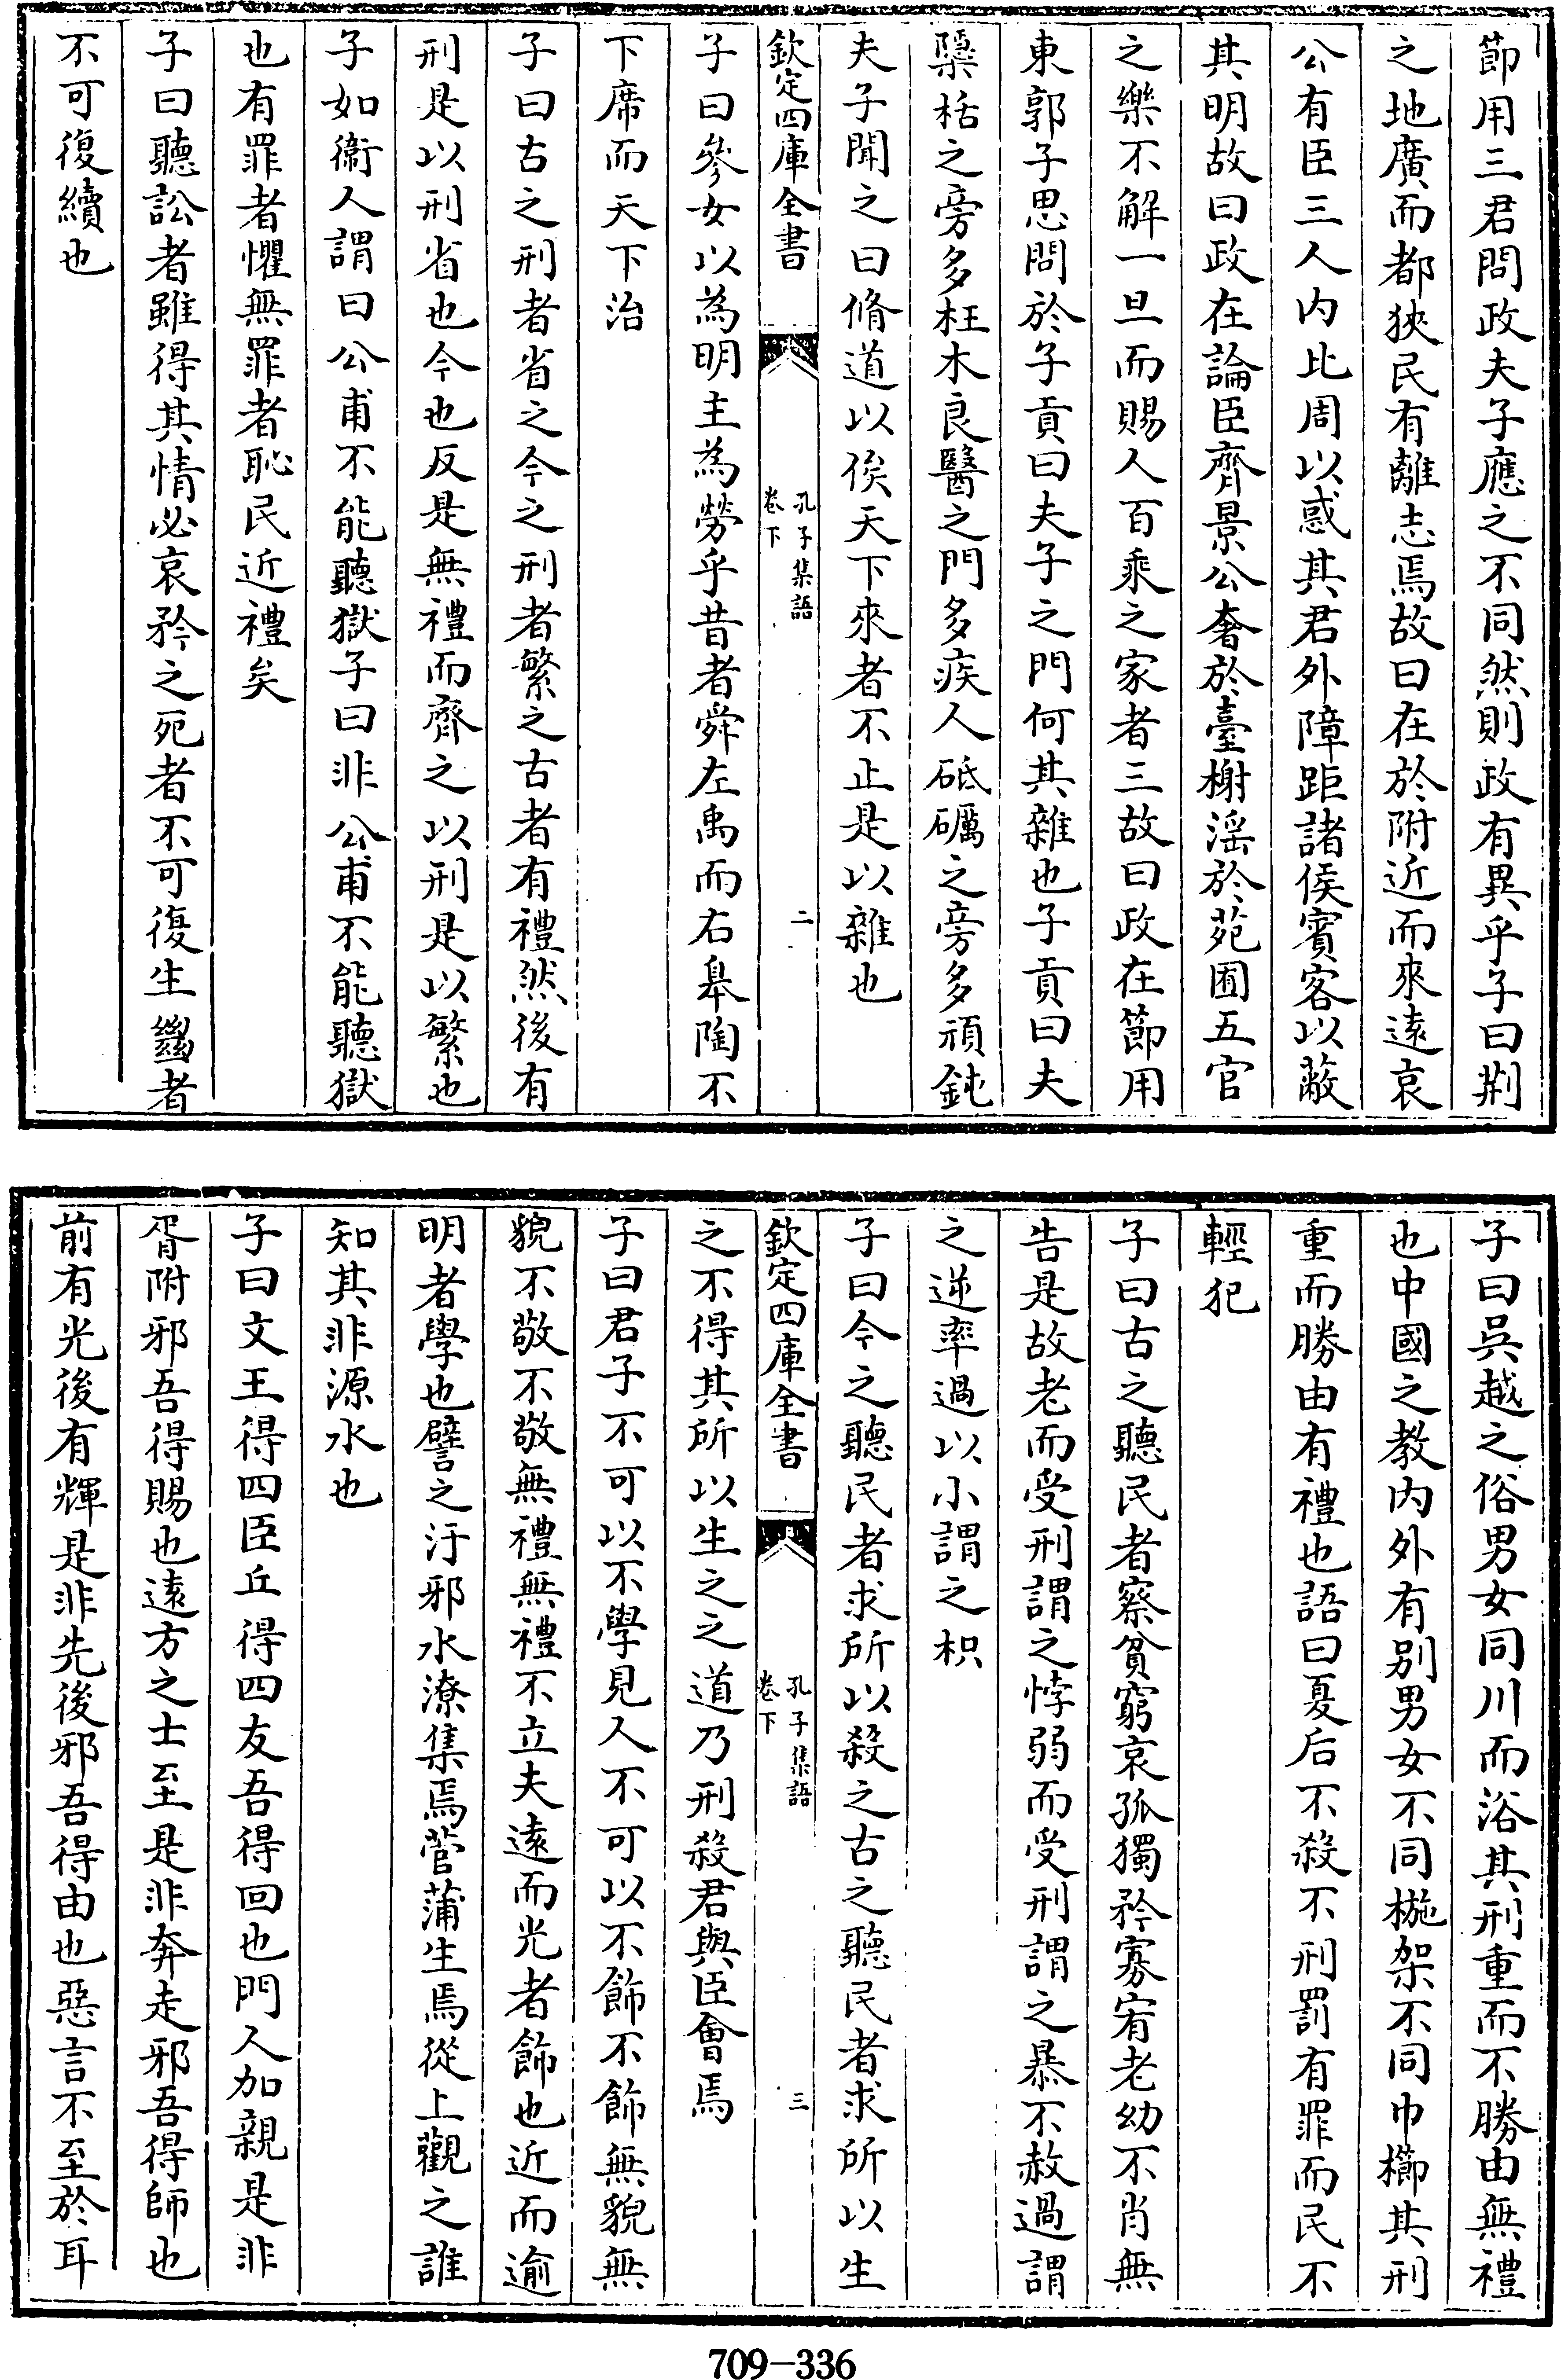 節用三君問政夫子應之不同然則政有異乎子曰荆
之地廣而都狹民有離志焉故曰在於附近而來遠哀
公有臣三人内比周以惑其君外障距諸侯賓客以蔽
其明故曰政在論臣齊景公奢於臺榭滛於苑囿五官
之樂不解一旦而賜人百乘之家者三故曰政在節用
東郭子思問於子貢曰夫子之門何其雜也子貢曰夫
櫽栝之旁多枉木良醫之門多疾人砥礪之旁多頑鈍
夫子聞之曰脩道以俟天下來者不止是以雜也
欽定四庫全書 孔子集語卷下 二
子曰參女以為明主為勞乎昔者舜左禹而右臯陶不
下席而天下治
子曰古之刑者省之今之刑者繁之古者有禮然後有
刑是以刑省也今也反是無禮而齊之以刑是以繁也
子如衞人謂曰公甫不能聽獄子曰非公甫不能聽獄
也有罪者懼無罪者恥民近禮矣
子曰聽訟者雖得其情必哀矜之死者不可復生㡭者
不可復續也
子曰呉越之俗男女同川而浴其刑重而不勝由無禮
也中國之教内外有别男女不同椸架不同巾櫛其刑
重而勝由有禮也語曰夏后不殺不刑罰有罪而民不
輕犯
子曰古之聽民者察貧窮哀孤獨矜寡宥老幼不肖無
告是故老而受刑謂之悖弱而受刑謂之暴不赦過謂
之逆率過以小謂之枳
子曰今之聽民者求所以殺之古之聽民者求所以生
欽定四庫全書 孔子集語卷下 三
之不得其所以生之之道乃刑殺君與臣會焉
子曰君子不可以不學見人不可以不飾不飾無貌無
貌不敬不敬無禮無禮不立夫遠而光者飾也近而逾
明者學也譬之汙邪水潦集焉菅蒲生焉從上觀之誰
知其非源水也
子曰文王得四臣丘得四友吾得回也門人加親是非
胥附邪吾得賜也遠方之士至是非奔走邪吾得師也
前有光後有輝是非先後邪吾得由也惡言不至於耳
709-336